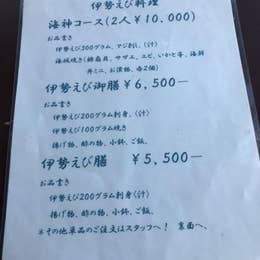 伊勢えび料理
海神コース(2人￥10.000)
お品書き
伊勢えび300グラム、アジ刺し、(汁)
海賊焼き(緋扇貝、サザエ、エビ、いかと等、海鮮
丼ミニ、お漬物、各2個)
伊勢えび御膳 ￥6,500—
お品書き
伊勢えび200グラム刺身、(汁)
伊勢えび100グラム焼き
揚げ物、酢の物、小鉢、ご飯、
伊勢えび膳 ￥5,500—
お品書き
伊勢えび200グラム刺身、(汁)
揚げ物、酢の物、小鉢、ご飯、
※その他単品のご注文はスタッフへ！ 裏面へ、